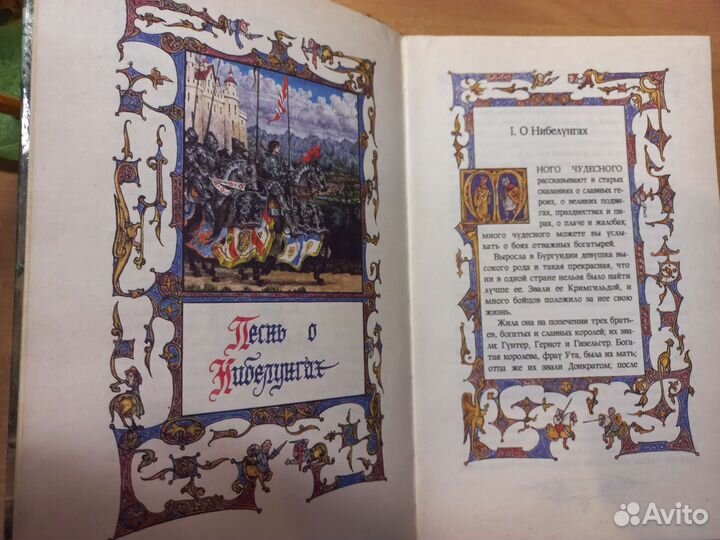 Песнь о
Нибелунгах
I. О Нибелунгах
МНОГО ЧУДЕСНОГО
рассказывают в старых
сказаниях о славных ге-
роях, о великих подви-
гах, празднествах и пи-
рах, о плаче и жалобах;
много чудесного можете вы услы-
хать о боях отважных богатырей.
Выросла в Бургундии девушка вы-
сокого рода и такая прекрасная, что
ни в одной стране нельзя было найти
лучше ее. Звали ее Кримгильдой, и
много бойцов положило за нее свою
жизнь.
Жила она на попечении трех брать-
ев, богатых и славных королей; их зва-
ли: Гунтер, Гернот и Гизельгер. Бога-
тая королева, фрау Ута, была их мать;
отца же их звали Донкратом; после
Avito